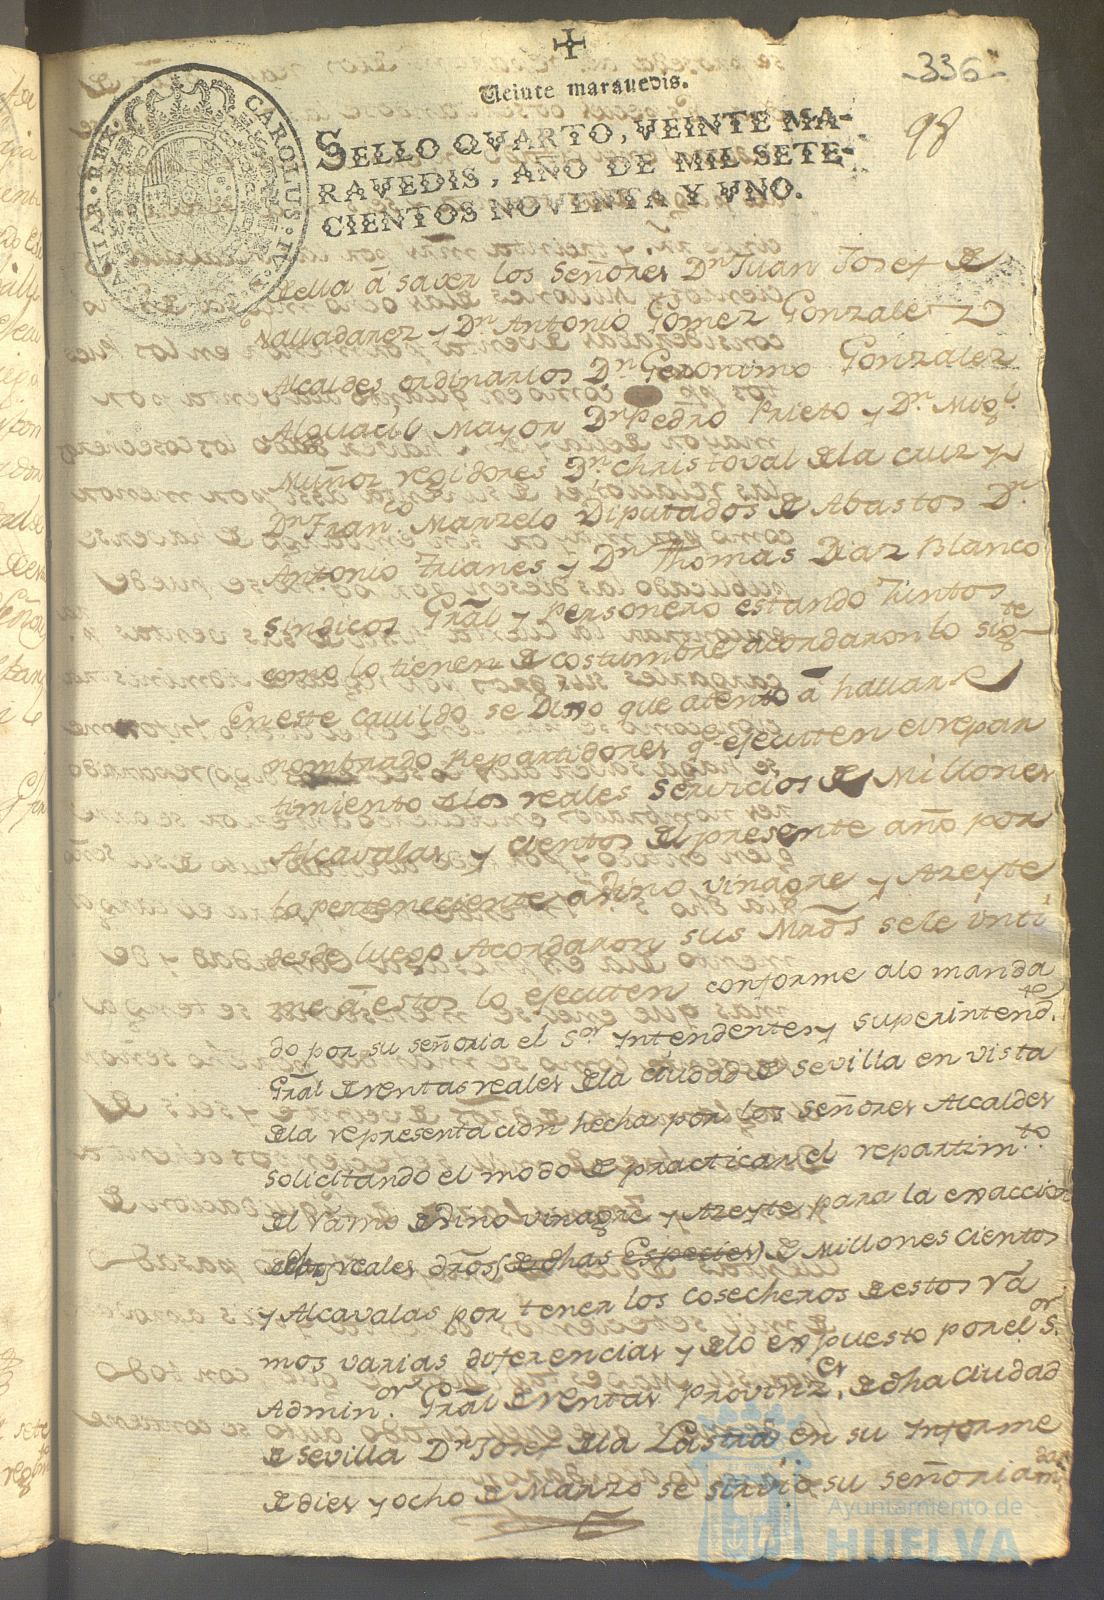 336
98
Veinte marauedis.
SELLO QVARTO, VEINTE MA-
RAVEDIS, AÑO DE MIL SETE-
CIENTOS NOVENTA Y VNO.
CAROLUS IV
Ella â saver los Señores Dn Juan Josef de
Valladarez y Dn Antonio Gomez Gonzalez
Alcaldes ordinarios Dn Geronimo Gonzalez
Alguacil Mayor Dn Pedro Prieto y Dn Migl
Muñoz regidores Dn Christoval de la cruz y
Dn Franco Marzelo Diputados de Abastos Dn
Antonio Jvanes y Dn Thomas Diaz Blanco
Sindicos Gral y Personero estando Juntos
como lo tienen de costumbre acordaron lo sigte
En este cavildo se Dixo que atento â hallarse
nombrado Repartidores qe ejecuten el repar
timiento de los reales servicios de Millones
Alcavalas y cientos del presente año por
lo perteneciente a vino vinagre y Azeyte
desde luego Acordaron sus Mrds se le inti
me qe estos lo ejecuten conforme alo manda
do por su señoria el Sor Yntendente y superintendte
Gral de rentas reales de la ciudad de Sevilla en vista
de la representacion hecha por los Señores Alcaldes
solicitando el modo de practicar el repartimto
del ramo de vino vinagre y Azeyte para la exaccion
reales dros (de dhas Especies) de Millones cientos
y Alcavalas por tener los cosecheros de estos ra
mos varias diferencias y de lo expuesto por el Sor
Adminor Gral de rentas provinzes de dha ciudad
de Sevilla Dn Josef de la Lastra en su Informe
de diez y ocho de Marzo se sirvio su señoria
Ayuntamiento de
HUELVA